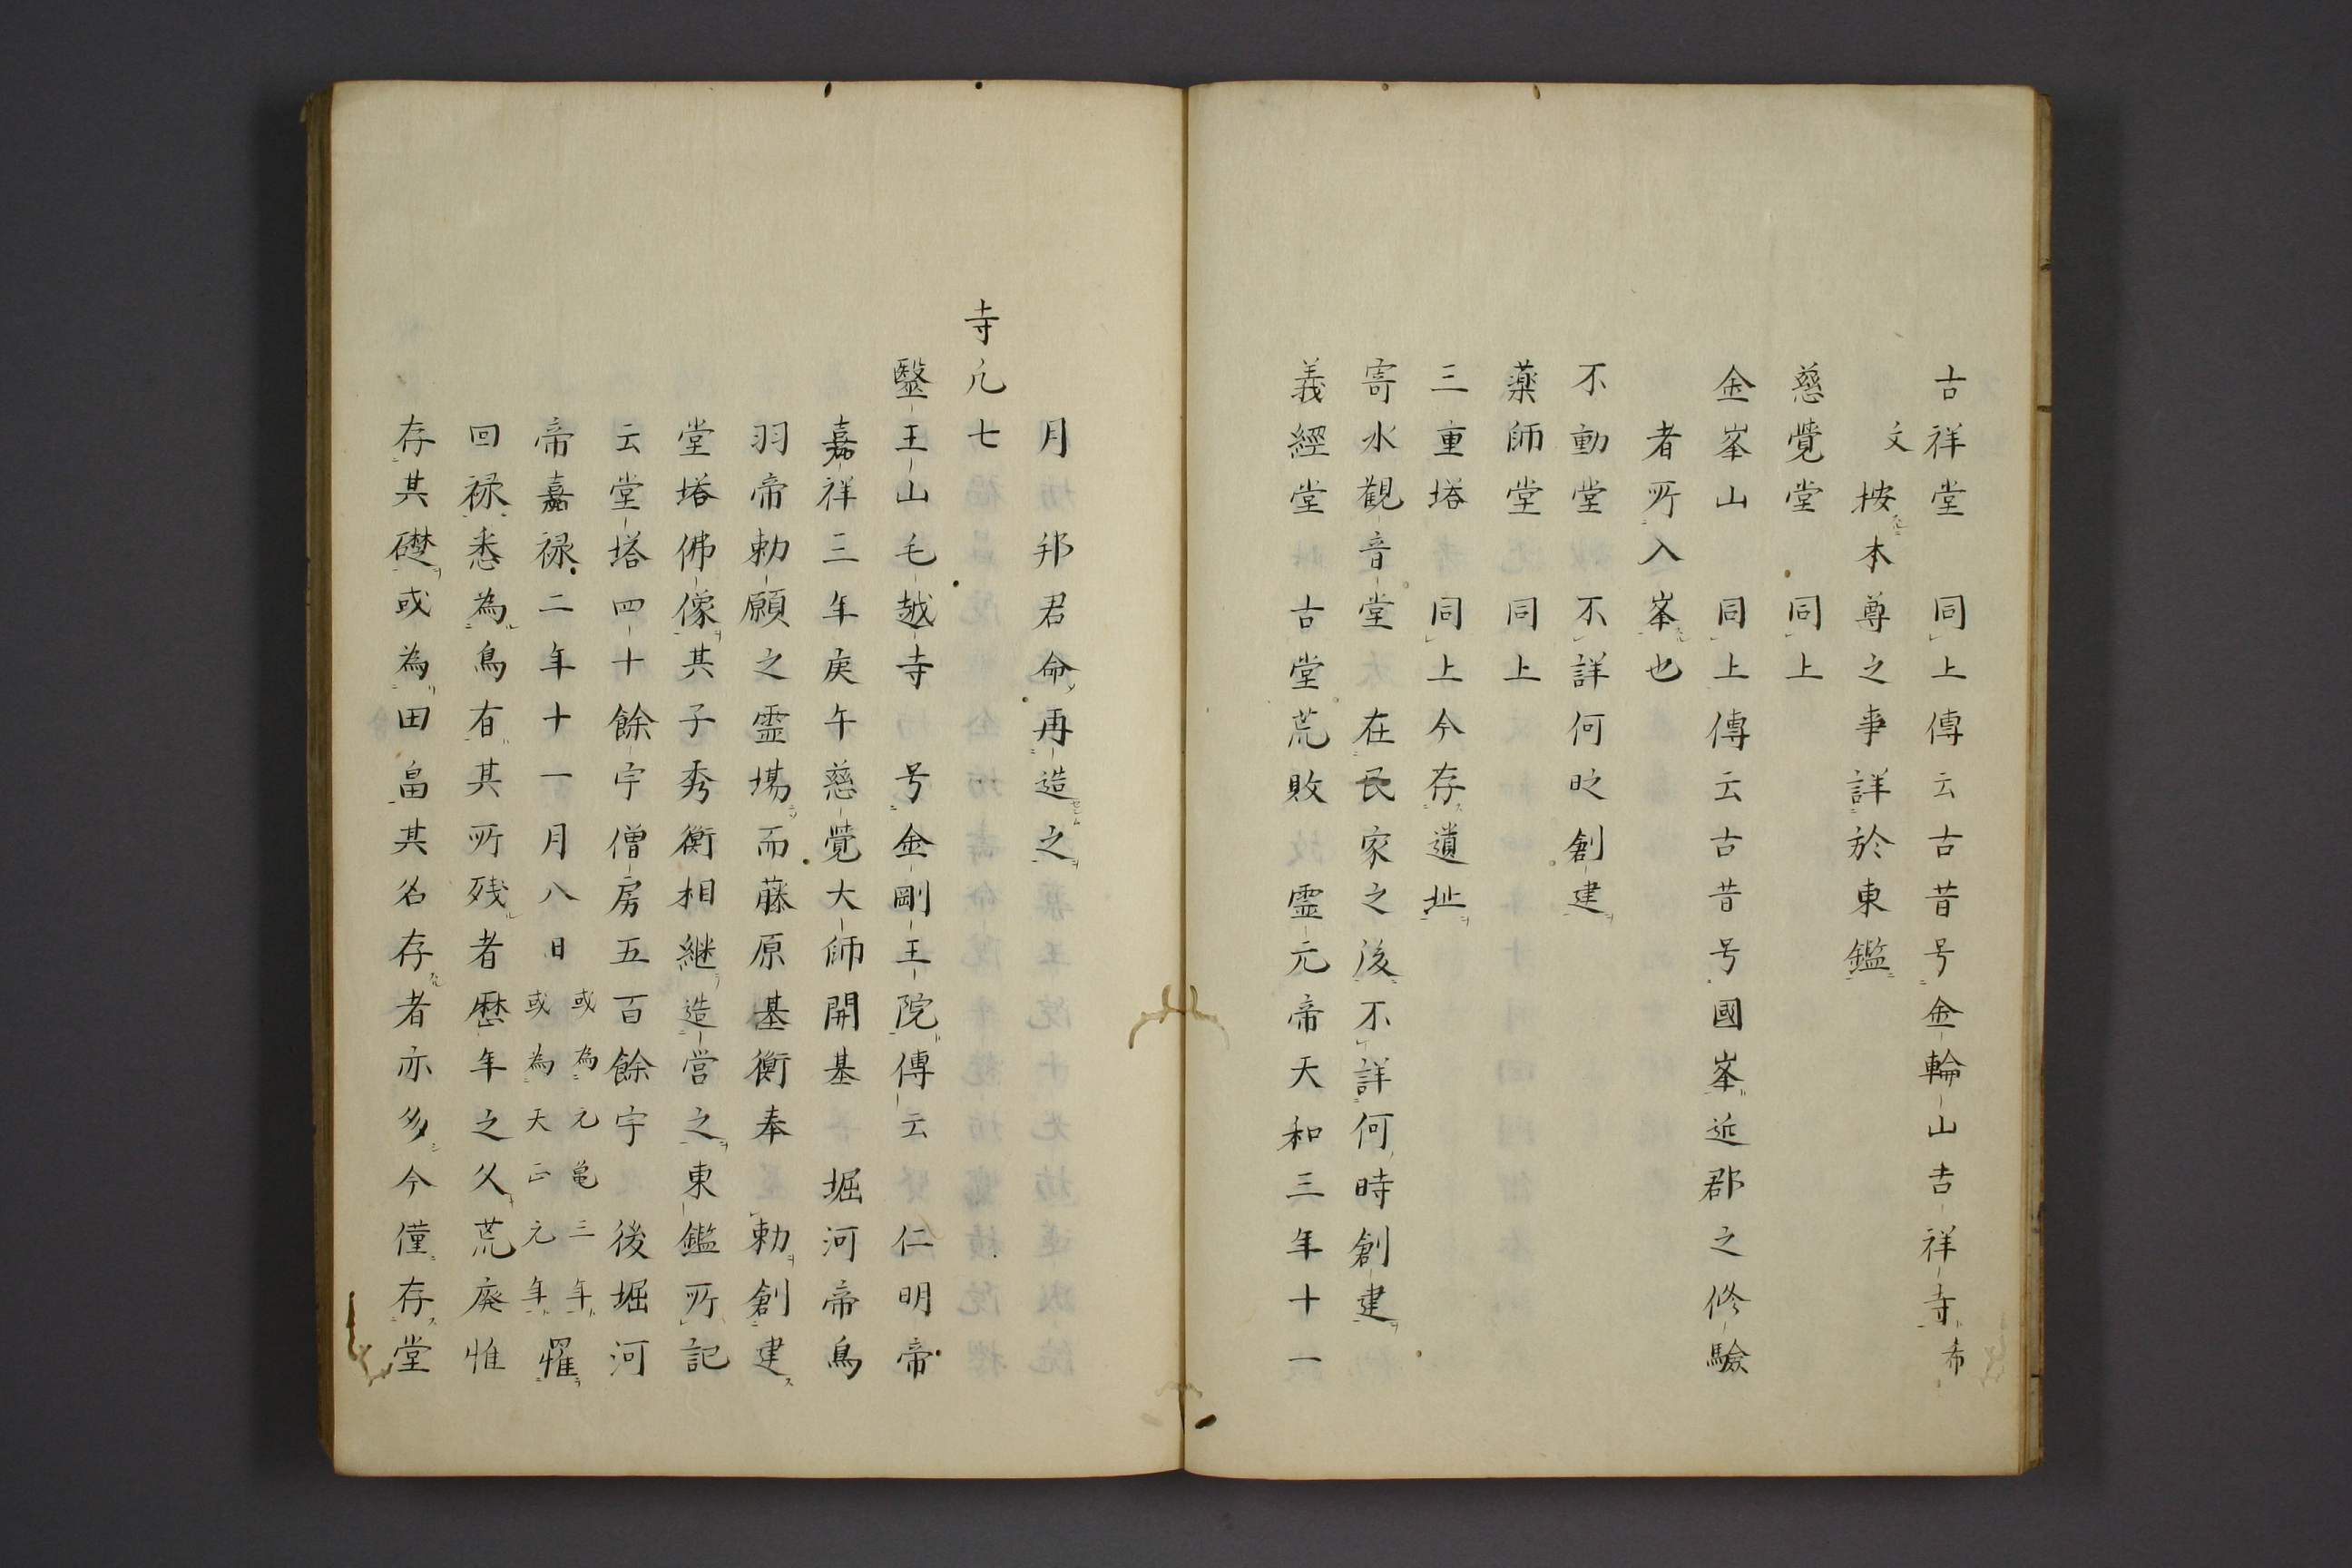 古祥堂　同上傳云古昔号金輪山吉祥寺布
文　桉本尊之事詳於東鑑
慈覺堂　同上
金峯山　同上傳云古昔号國峯近郡之修驗
者所入峯也
不動堂　不詳何时創建
藥師堂　同上
三重塔　同上今存遺址
寄水觀音堂　在民家之後不詳何時創建
義經堂　古堂荒敗　霊元帝天和三年十一
月　邦君命再造之
寺凢七
醫王山毛越寺　号金剛王院傳云　仁明帝
嘉祥三年庚午慈覺大師開基　堀河帝鳥
羽帝勅願之霊場而藤原基衡奉　勅創建
堂塔佛像其子秀衡相継造営之東鑑所記
云堂塔四十餘宇僧房五百餘宇　後堀河
帝嘉禄二年十一月八日或為元亀三年或為天正元年罹
回禄悉為烏有其所残者歷年之久荒廃惟
存其礎或為田畠其名存者亦多今僅存堂